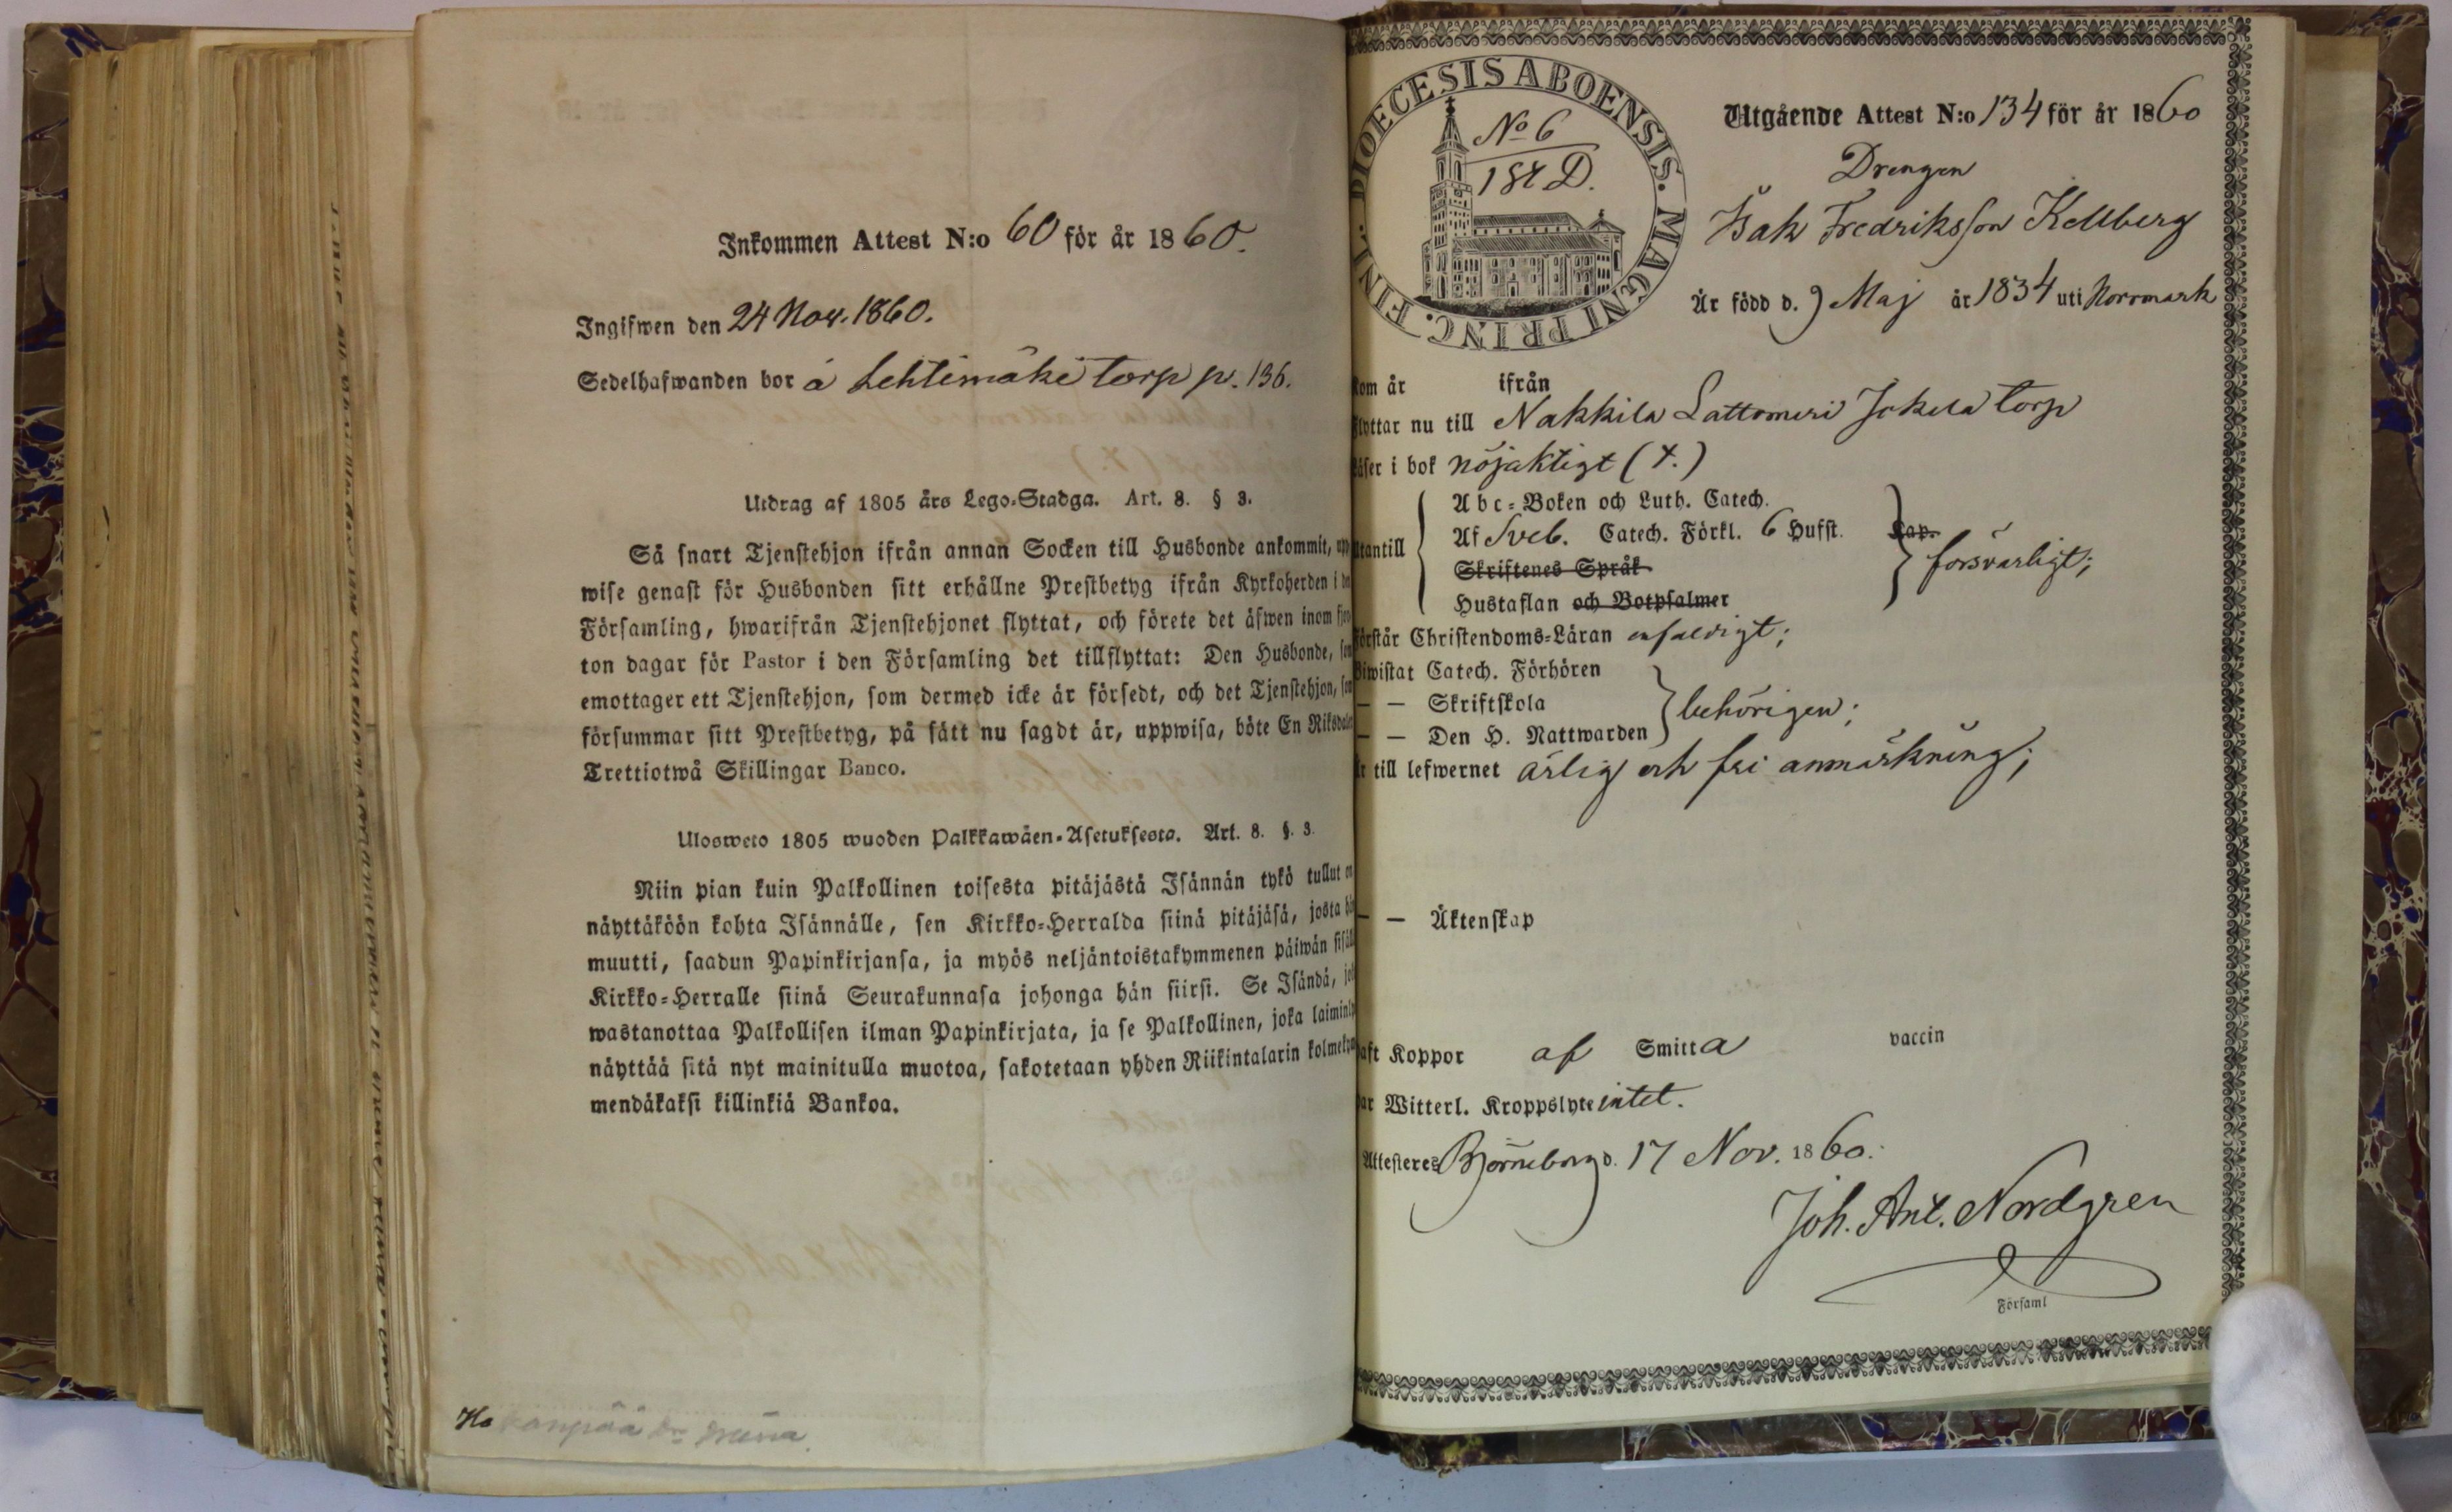 Inkommen Attest N:o 60 för år 1860.
Ingifwen den 24 Nov. 1860.
Sedelhafwanden bor å Lehtimäki torp p. 136.
Utdrag af 1805 års Lego-Stadga. Art. 8. § 3.
Så snart Tjenstehjon ifrån annan Socken till Husbonde ankommit, upp
wise genast för Husbonden sitt erhållne Prestbetyg ifrån Kyrkoherden i
Församling, hwarifrån Tjenstehjonet flyttat, och förete det äfwen inom fjor
ton dagar för Pastor i den Församling det tillflyttat: Den Husbonde,
emottager ett Tjenstehjon, som dermed icke är försedt, och det Tjenstehjon,
försummar sitt Prestbetyg, på sätt nu sagdt är, uppwisa, böte En Riksdaler
Trettiotwå Skillingar Banco.
Ulosweto 1805 wuoden Palkkawäen-Asetuksesta. Art. 8. §. 3.
Niin pian kuin Palkollinen toisesta pitäjästä Isännän tykö tullut on
näyttäköön kohta Isännälle, sen Kirkko-Herralda siinä pitäjäsä, josta
muutti, saadun Papinkirjansa, ja myös neljäntoistakymmenen päiwän
Kirkko-Herralle siinä Seurakunnasa johonga hän siirsi. Se Isändä,
wastanottaa Palkollisen ilman Papinkirjata, ja se Palkollinen, joka laimin
näyttää sitä nyt mainitulla muotoa, sakotetaan yhden Riikintalarin kolme
mendäkaksi killinkiä Bankoa.
DIOECESIS ABOENSIS. MAGNI PRINC. FINL.
No 6
184 D.
Utgående Attest N:o 134 för år 1860
Drengen
Isak Fredriksson Kellberg
Är född d. 9 Maj år 1834 uti Norrmark
kom år ifrån
flyttar nu till Nakkila Lattomeri Jokela torp
läser i bok nöjaktigt (+.)
utantill
Abc-Boken och Luth. Catech.
Af Sveb. Catech. Förkl. 6 Hufst. Kap.
Skriftenes Språk
Hustaflan och Botpsalmer
försvarligt;
förstår Christendoms-Läran enfaldigt;
biwistat Catech. Förhören
— — Skriftskola
— — Den H. Nattwarden
behörigen;
är till lefwernet ärlig och fri anmärkning;
— — Äktenskap
haft Koppor af Smitta vaccin
har Witterl. Kroppslyte intet.
Attesteres Björneborg d. 17 Nov. 1860.
Joh. Ant. Nordgren
Församl